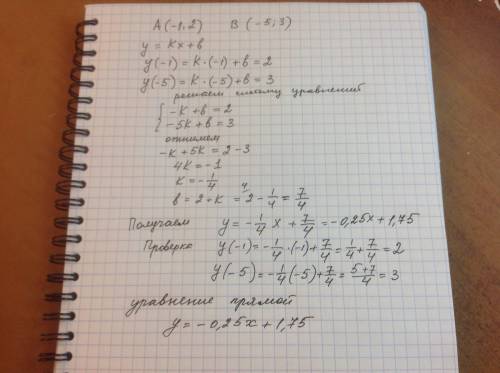 A(-1; 2) B(-5; 3)
y = kx + b
y(-1) = k · (-1) + b = 2
y(-5) = k · (-5) + b = 3
решаем систему уравнений
{ -k + b = 2
-5k + b = 3
отнимем
-k + 5k = 2 - 3
4k = -1
k = -1/4
b = 2 + k = 2 - 1/4 = 7/4
Получаем y = -1/4 x + 7/4 = -0,25x + 1,75
Проверка y(-1) = -1/4 · (-1) + 7/4 = 1/4 + 7/4 = 2
y(-5) = -1/4 (-5) + 7/4 = 5+7/4 = 3
уравнение прямой
y = -0,25x + 1,75